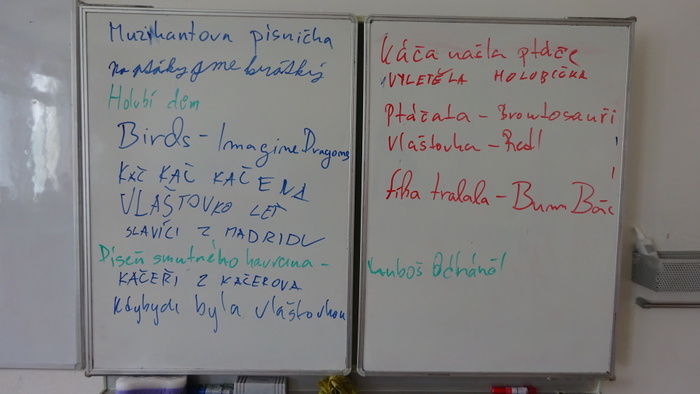 Muzikantova písnička
na ptáky jsme krátký
Holubí dům
Birds - Imagine Dragons
KAČ KAČ KAČENA
VLAŠTOVKO LEŤ
SLAVÍCI Z MADRIDU
Píseň smutného havrana -
KAČEŘI Z KAČEROVA
Kdybych byla vlaštovkou
Káča našla ptáče
VYLETĚLA HOLUBIČKA
Ptáčata - Brontosauři
Vlaštovka - Redl
fika tralala - Bum Bác
Luboš Odháněl